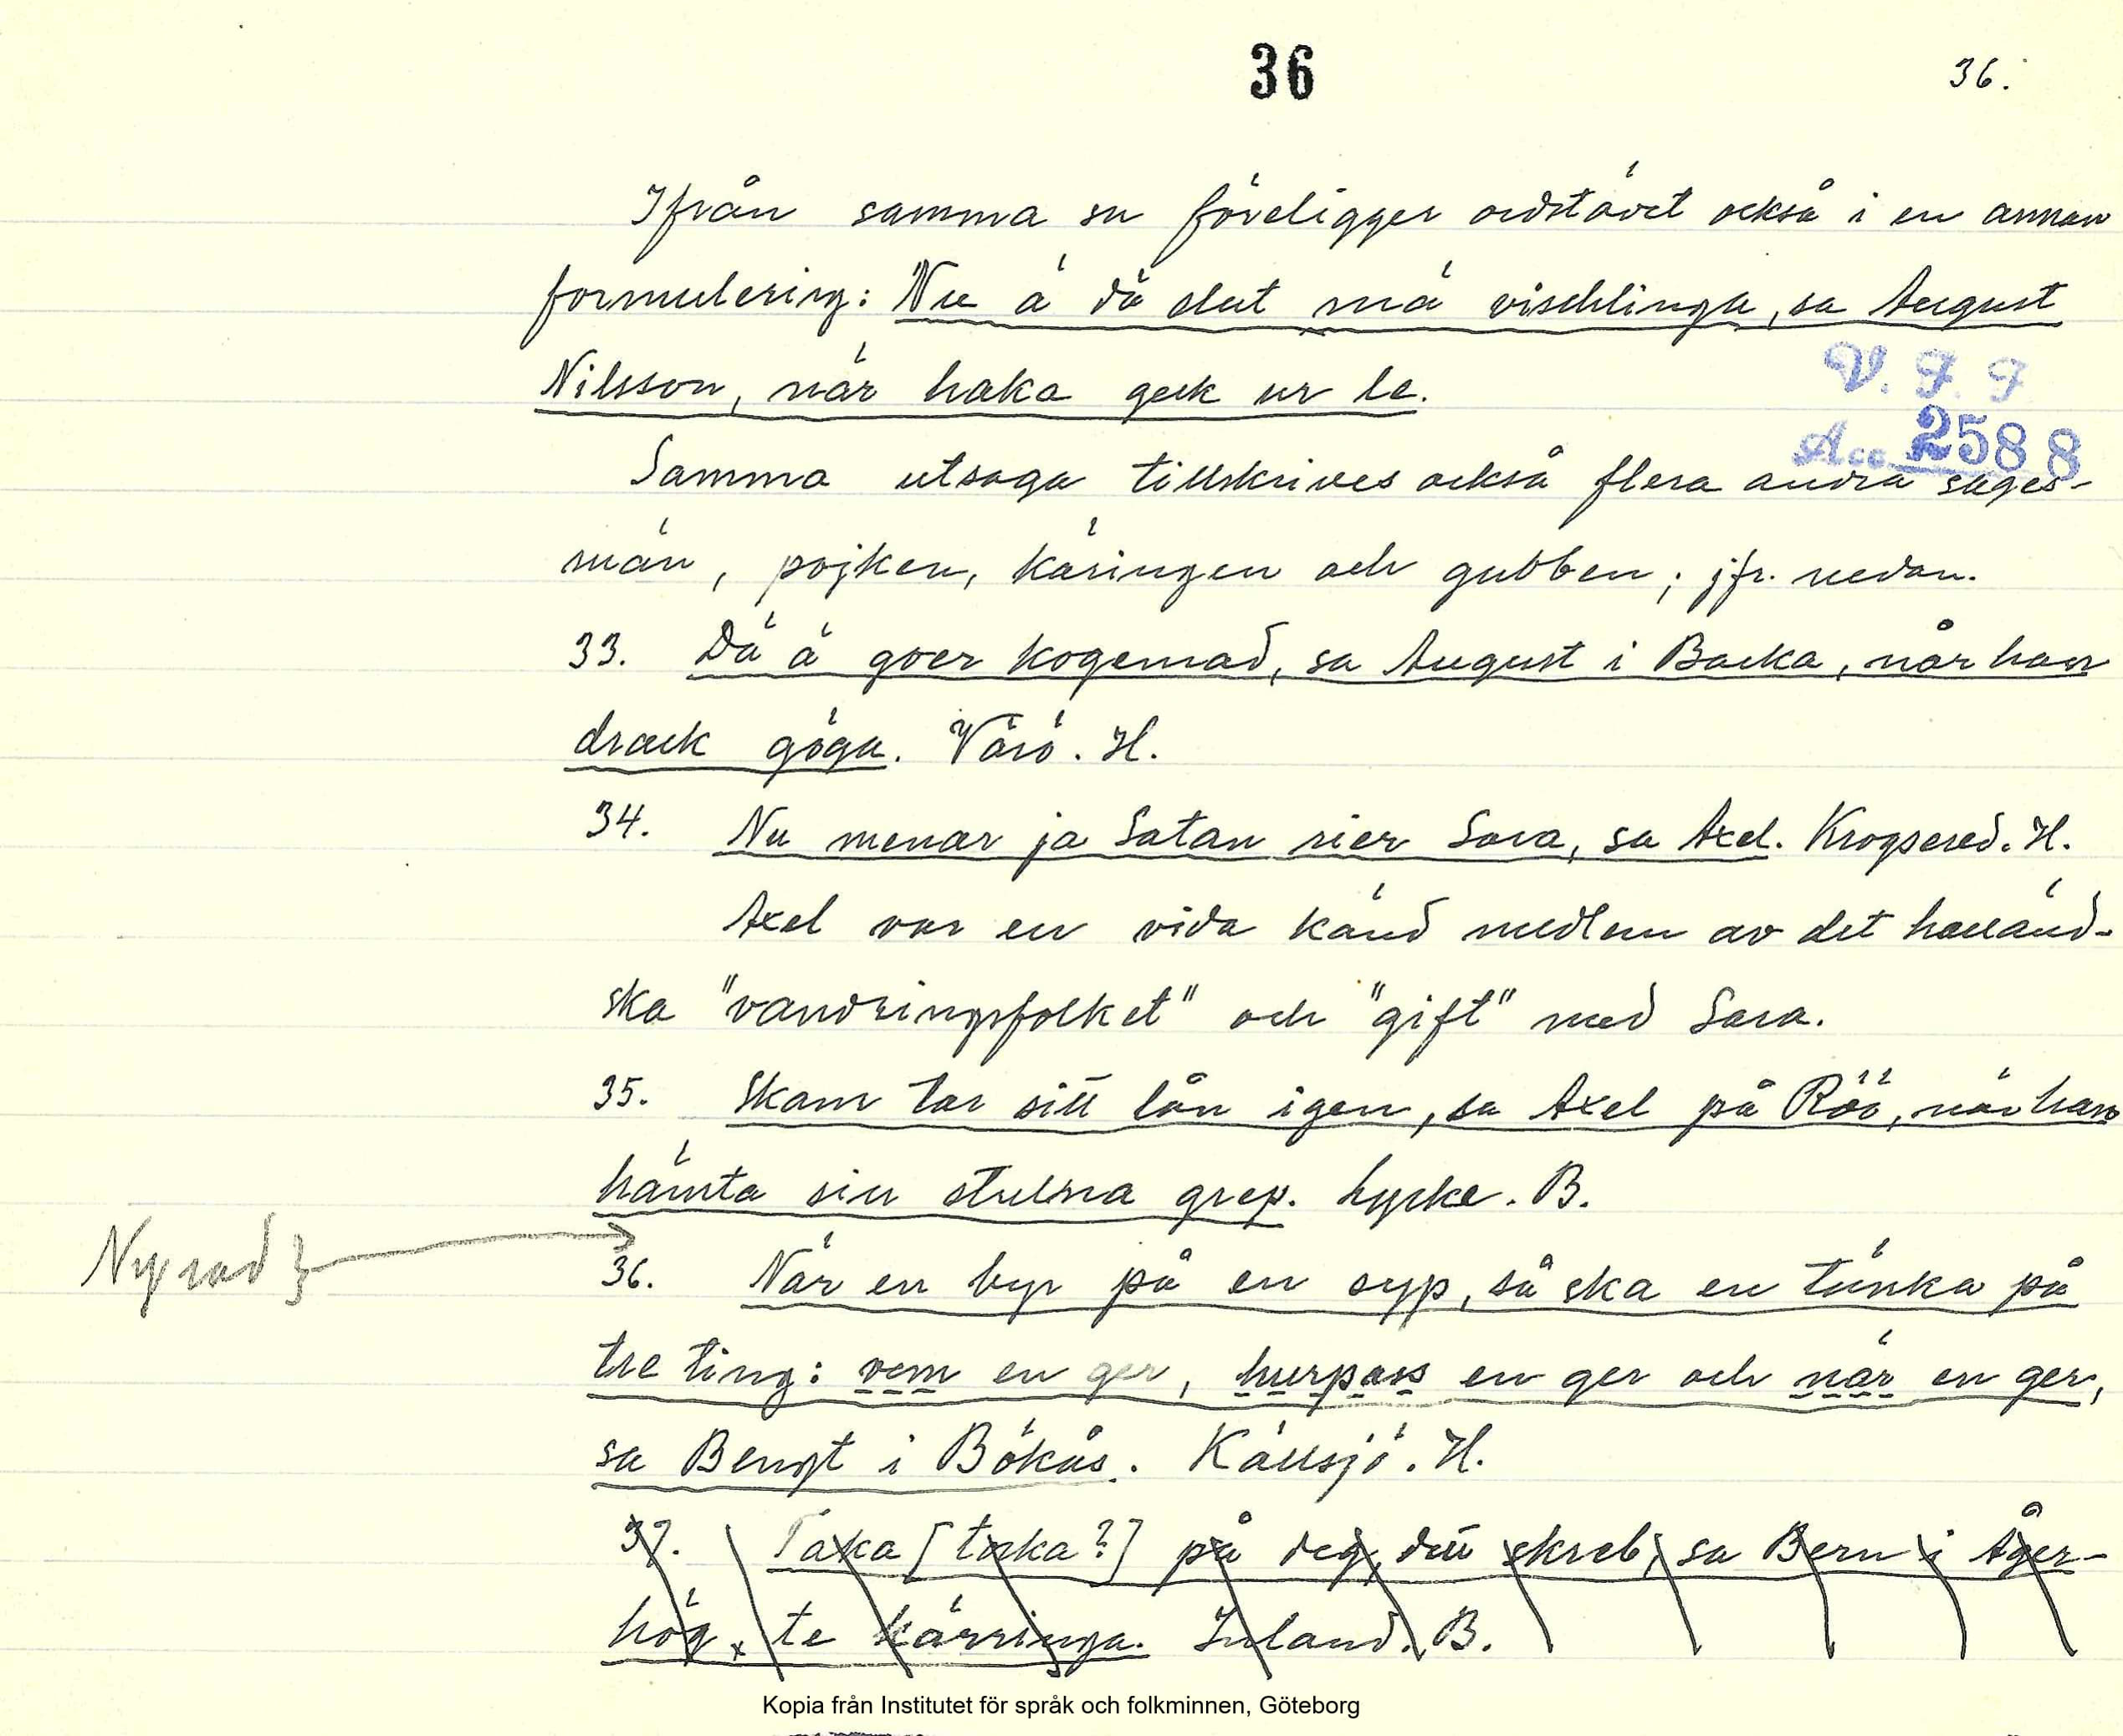 36
36.
Ifrån samma sn föreligger ordstävet också i en annan
formulering: Nu ä dä slut mä vischlinga, sa August
Nilsson, när haka geck ur le.
V. F. F
Acc. 2588
Samma utsaga tillskrives också flera andra sages-
män, pojken, käringen och gubben; jfr. nedan.
33. Dä ä goer kogemad, sa August i Backa, når han
drack göga. Värö. H.
34. Nu menar ja Satan rier Sara, sa Axel. Krogsered. H.
Axel var en vida känd medlem av det halländ-
ska "vandringsfolket" och "gift" med Sara.
35. Skam tar sitt lån igen, sa Axel på Röö, när han
hämta sin stulna grep. Lycke. B.
Ny rad
36. När en byr på en syp, så ska en tänka på
tre ting: vem en ger, hurpass en ger och när en ger,
sa Bengt i Bökås. Källsjö. H.
37. Taka [toka?] på deg, ditt skreb, sa Bern i Åger-
hög, te kärringa. Inland. B.
Kopia från Institutet för språk och folkminnen, Göteborg